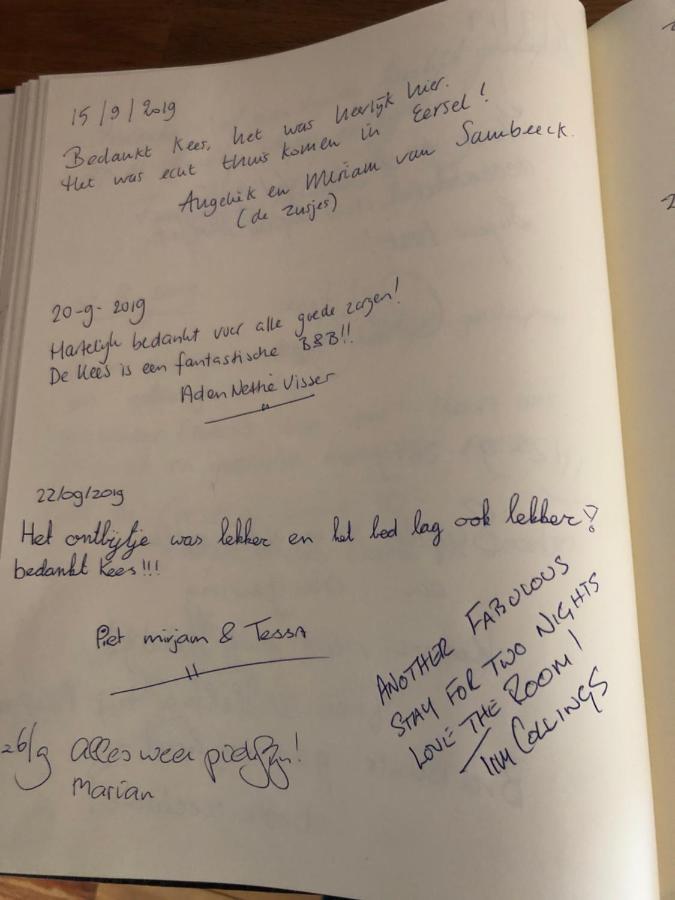 15/9/2019
Bedankt Kees, het was heerlijk hier.
Het was echt thuis komen in Eersel!
Angeliek en Miriam van Sambeeck.
(de zusjes)
20-9-2019
Hartelijk bedankt voor alle goede zorgen!
De Kees is een fantastische B&B!!
Ad en Nettie Visser
22/09/2019
Het ontbijtje was lekker en het bed lag ook lekker!
bedankt Kees!!!
Piet mirjam & Tessa
ANOTHER FABULOUS
STAY FOR TWO NIGHTS
LOVE THE ROOM!
TIM COLLINGS
26/9 alles weer picobello fijn!
Marian